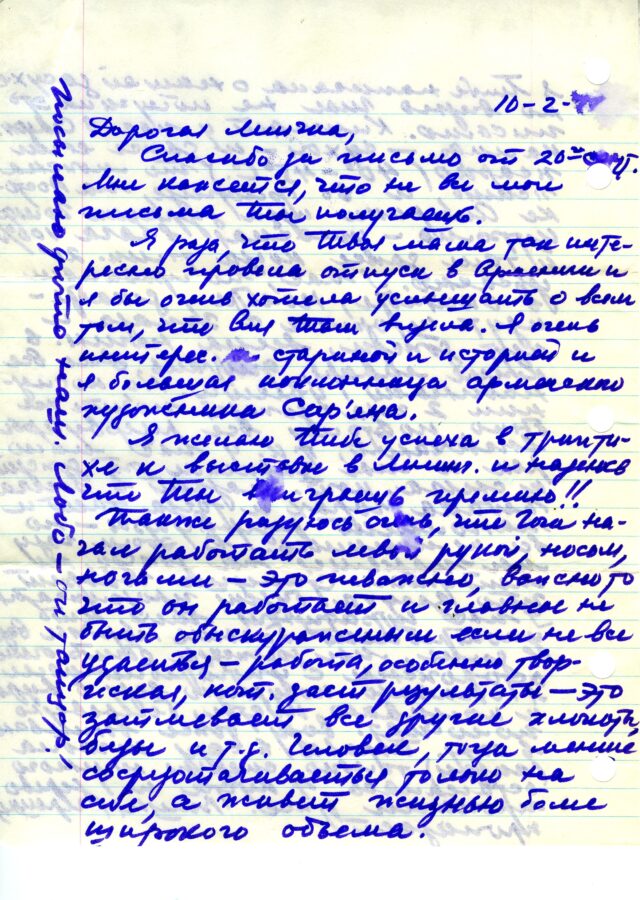 10-2-
Дорогая Линочка,
Спасибо за письмо от 20го сент.
Мне кажется, что не все мои
письма Ты получаешь.
Я рада, что Твоя мама так инте-
ресно провела отпуск в Армении и
я бы очень хотела услышать о всем
том, что она там видела. Я очень
интерес. стариной и историей и
я большая поклонница армянского
художника Сар'яна.
Я желаю Тебе успеха в трипти-
хе к выставке в и надеюсь
что Ты выиграешь премию!!
Также радуюсь очень, что Гога на-
чал работать левой рукой, носом,
ногами — это неважно, важно то
что он работает и главное не
быть обескураженным если не все
удается — работа, особенно твор-
ческая, кот. дает результаты — это
затмевает все другие хлопоты
беды и т.д. Человек, тогда меньше
сосредотачивается только на
себе, а живет жизнью более
широкого объема.
Посылаю фото наш. Любо — он танцор!